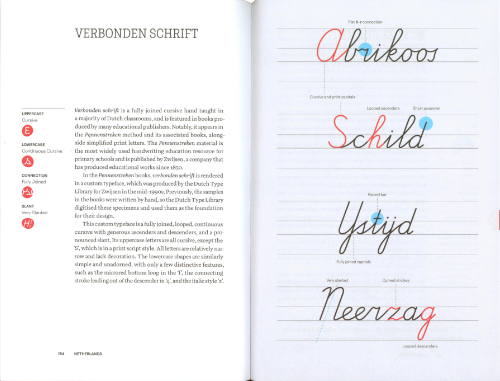 VERBONDEN SCHRIFT
UPPERCASE
Cursive
LOWERCASE
Continuous Cursive
CONNECTION
Fully Joined
SLANT
Very Slanted
Verbonden schrift is a fully joined cursive hand taught in
a majority of Dutch classrooms, and is featured in books pro-
duced by many educational publishers. Notably, it appears in
the Pennenstreken method and its associated books, along-
side simplified print letters. The Pennenstreken material is
the most widely used handwriting education resource for
primary schools and is published by Zwijsen, a company that
has produced educational works since 1850.
In the Pennenstreken books, verbonden schrift is rendered
in a custom typeface, which was produced by the Dutch Type
Library for Zwijsen in the mid-1990s. Previously, the samples
in the books were written by hand, so the Dutch Type Library
digitised these specimens and used them as the foundation
for their design.
This custom typeface is a fully joined, looped, continuous
cursive with generous ascenders and descenders, and a pro-
nounced slant. Its uppercase letters are all cursive, except the
'S', which is in a print script style. All letters are relatively nar-
row and lack decoration. The lowercase shapes are similarly
simple and unadorned, with only a few distinctive features,
such as the mirrored bottom loop in the 'f', the connecting
stroke leading out of the descender in 'q', and the italic style 'z'.
184 NETHERLANDS
Abrikoos
Cursive and print capitals
Looped ascenders
Short ascender
Schild
IJstijd
Fully joined capitals
Very slanted
Curved strokes
Neerzag
Looped descenders